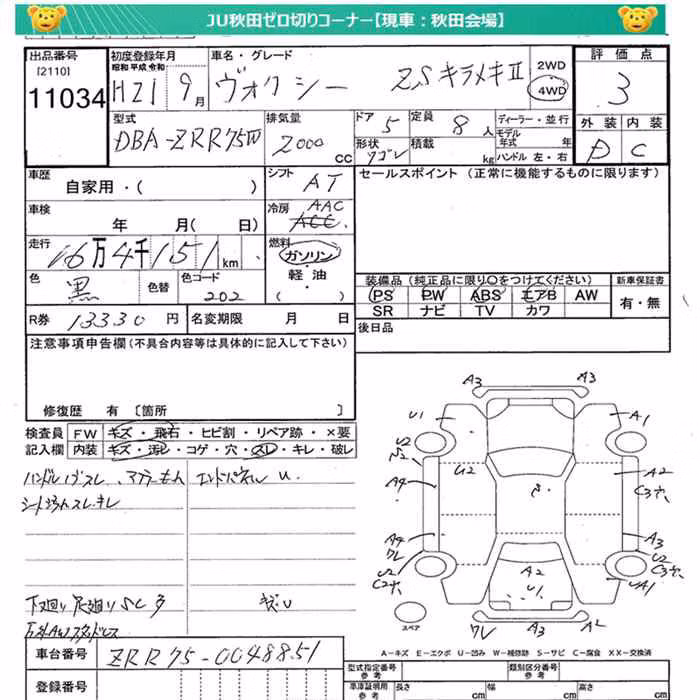 JU秋田ゼロ切りコーナー【現車：秋田会場】
出品番号
[2110]
11034
初度登録年月
昭和 平成 令和
H21 9月
車名・グレード
ヴォクシー ZSキラメキII
2WD
4WD
評価点
3
外装 内装
D C
型式
DBA-ZRR75W
排気量
2000 CC
ドア 5
形状 ワゴン
定員 8人
積載 kg
ディーラー・並行
モデル年式 年
ハンドル 左・右
車歴
自家用・( )
シフト AT
セールスポイント (正常に機能するものに限ります)
車検
年 月( 日)
冷房 AAC
ACC
走行
16万4千151km
燃料
ガソリン
軽油
( )
色
黒
色替
色コード
202
装備品(純正品に限り〇をつけてください)
PS PW ABS エアB AW
SR ナビ TV カワ
新車保証書
有・無
R券 13330円
名変期限 月 日
後日品
注意事項申告欄(不具合内容等は具体的に記入して下さい)
修復歴 有 [箇所 ]
検査員記入欄
FW キズ・飛石・ヒビ割・リペア跡・×要
内装 キズ・汚レ・コゲ・穴・スレ・キレ・破レ
U
下廻り 足廻り SC 多
キズU
A3 A3
U1 A1
U2 U2
A4 U2 A2
C3穴
A4 A3
ワレ U2
U2 C3穴
C2穴 A2 UA1
U1
スペア
ワレ A2
A－キズ E－エクボ U－凹み W－補修跡 S－サビ C－腐食 XX－交換済
車台番号 ZRR75-0048851
登録番号
型式指定番号 参考
類別区分番号 参考
車庫証明用 参考
長さ cm 幅 cm 高さ cm